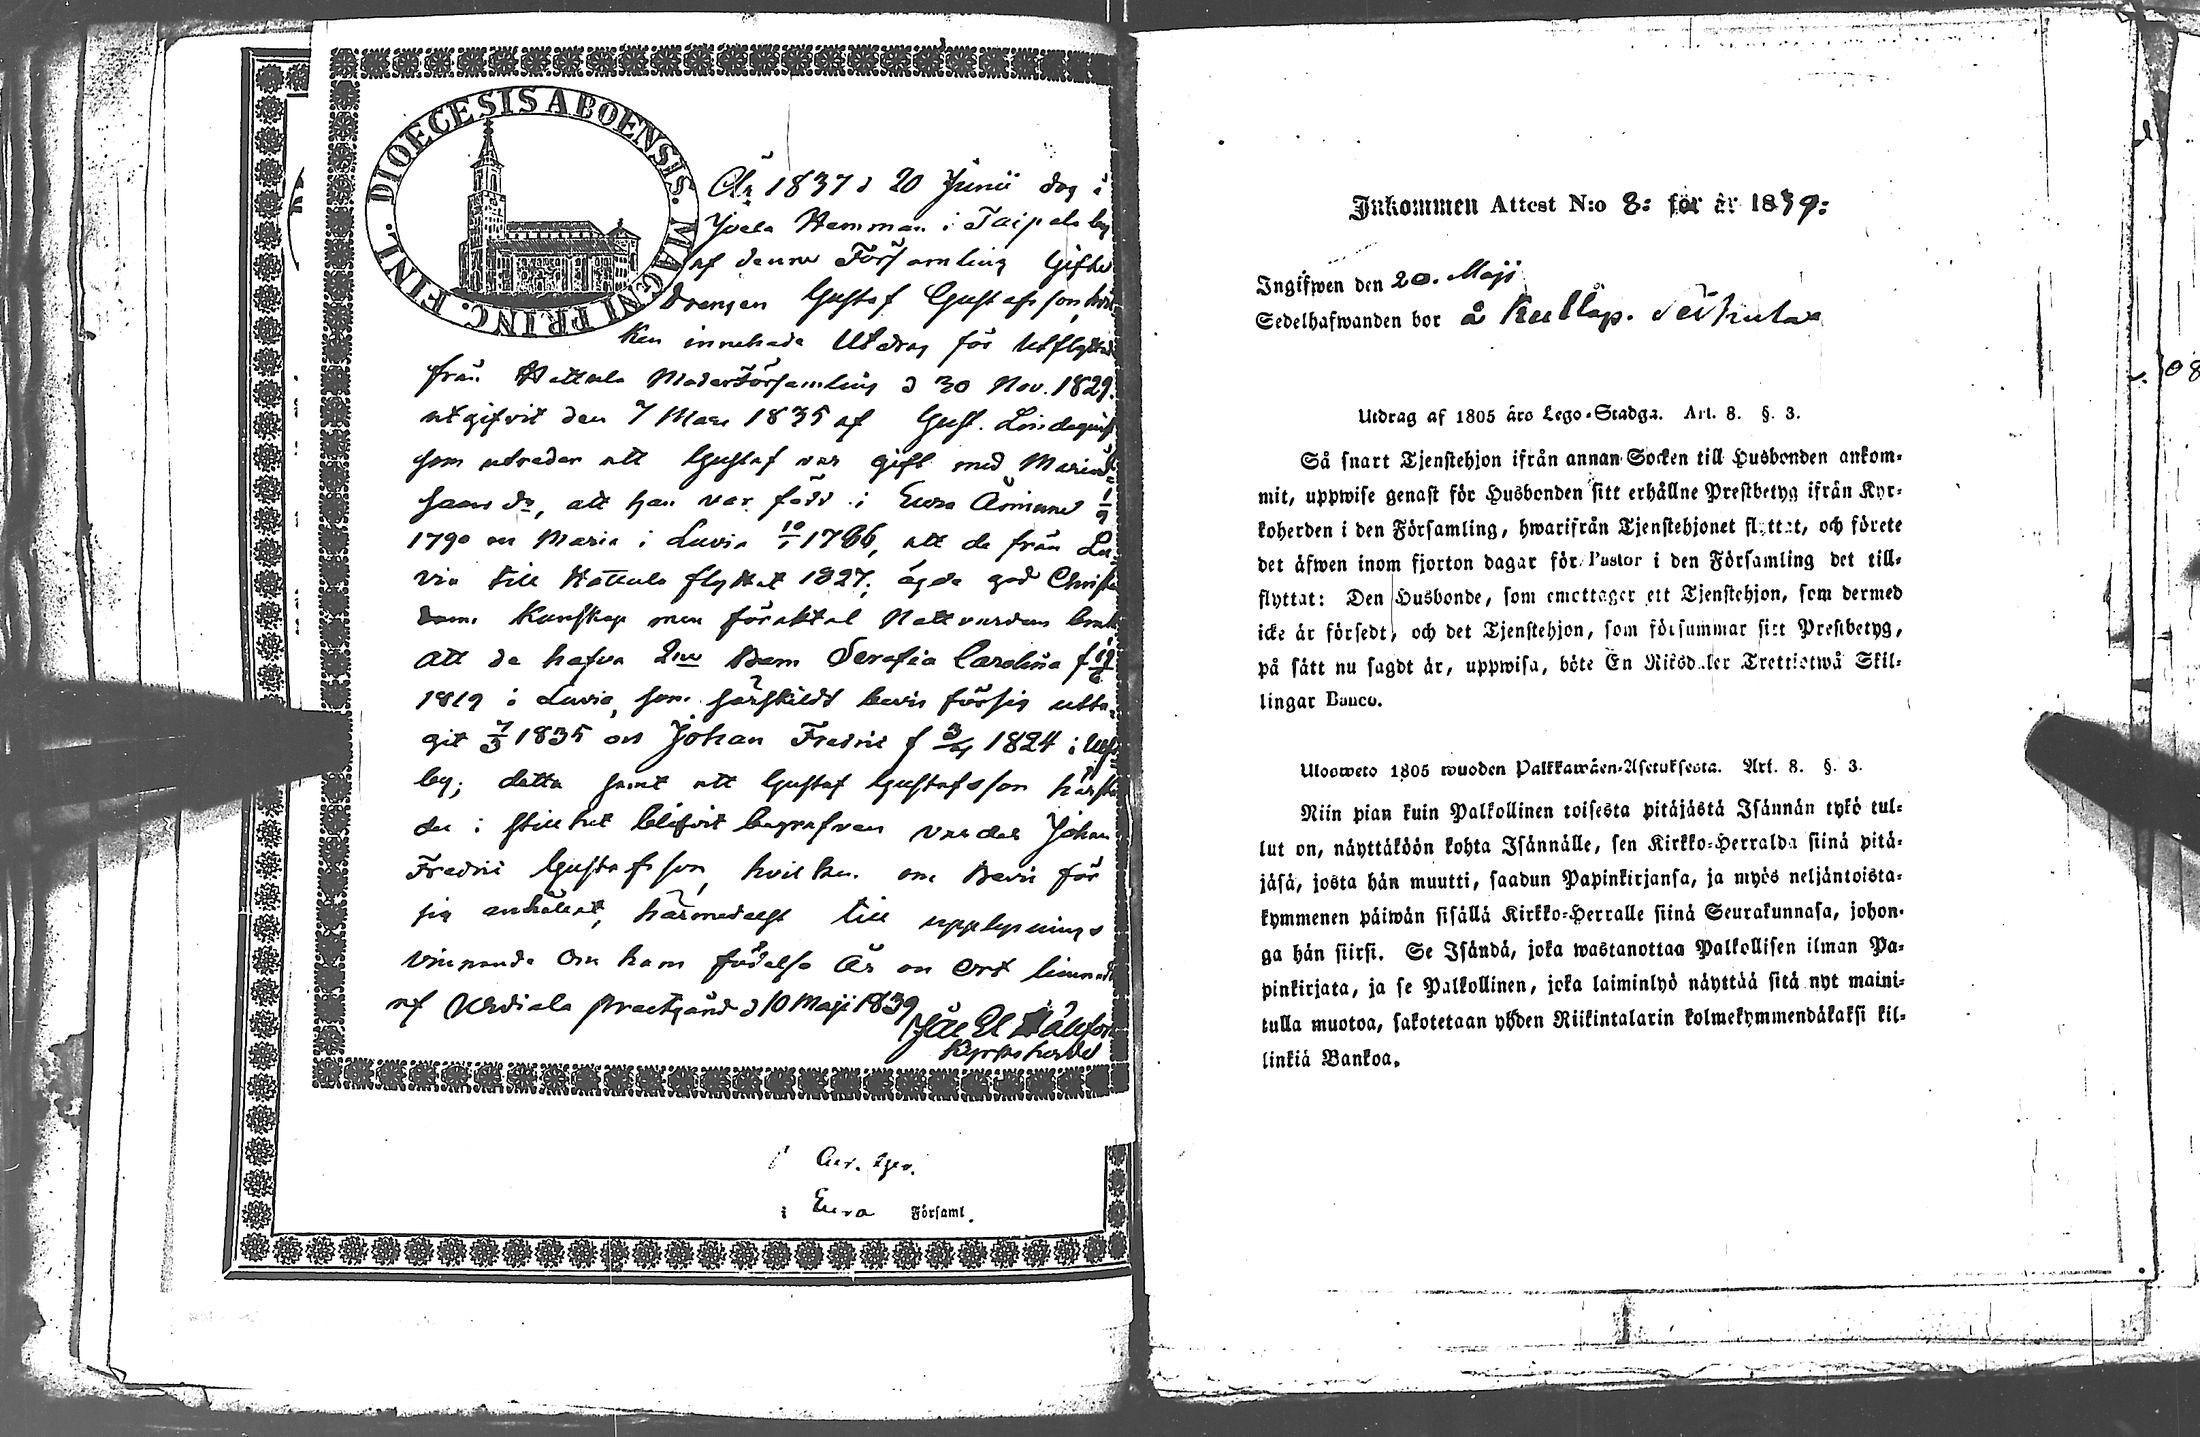 DIOECESIS ABOENSIS. MAGNI PRINC. FINL.
År 1837 d 20 Junii dag i
Yvela Hemman i Taipale by
af denna Församling Gifte
Drengen Gustaf Gustafsson, hvil
ken innehade Utdrag för utflyttad
från Hattula Moderförsamling d 30 Nov. 1829.
utgifvit den 7 Mars 1835 af Gust. Lindequist
som utreder att Gustaf var gift med Maria
att han var född i Eura Åminne 1/9
1790 en Maria i Luvia 10/1 1786, att de från Lu
via till Hattula flyttat 1827; ägde god Christen
doms Kunskap men föraktat Nattvardens bruk
Att de hafva 2ne Barn Serafia Carolina f
1819 i Luvia, som särskildt bevis för sig utta,
git 7/3 1835 och Johan Fredric f 3/4 1824 i Ulfs
by; detta samt att Gustaf Gustafsson härstä
des i stillhet blifvit begrafven varder Johan
Fredric Gustafsson, hvilken om Bevis för
sig anhållit, härmedelst till upplysnings
vinnande om hans födelse År en Ort lemnadt
af Urdiala prestgård d 10 Maji 1839
Kyrkoherde
i Eura Församl.
Inkommen Attest N:o 8: för år 1839:
Ingifwen den 20. Maji
Sedelhafwanden bor å
Utdrag af 1805 års Lego-Stadga. Art. 8. §. 3.
Så snart Tjenstehjon ifrån annan Socken till Husbonden ankom-
mit, uppwise genast för Husbonden sitt erhållne Prestbetyg ifrån Kyr-
koherden i den Församling, hwarifrån Tjenstehjonet flyttat, och förete
det äfwen inom fjorton dagar för Pastor i den Församling det till-
flyttat: Den Husbonde, som emottager ett Tjenstehjon, som dermed
icke är försedt, och det Tjenstehjon, som försummar sitt Prestbetyg,
på sätt nu sagdt är, uppwisa, böte En Riksdaler Trettiotwå Skil-
lingar Banco.
Ulosweto 1805 wuoden Palkkawäen-Asetuksesta. Art. 8. §. 3.
Niin pian kuin Palkollinen toisesta pitäjästä Isännän tykö tul-
lut on, näyttäköön kohta Isännälle, sen Kirkko-Herralda siinä pitä-
jäsä, josta hän muutti, saadun Papinkirjansa, ja myös neljäntoista-
kymmenen päiwän sisällä Kirkko-Herralle siinä Seurakunnasa, johon-
ga hän siirsi. Se Isändä, joka wastanottaa Palkollisen ilman Pa-
pinkirjata, ja se Palkollinen, joka laiminlyö näyttää sitä nyt maini-
tulla muotoa, sakotetaan yhden Riikintalarin kolmekymmendäkaksi kil-
linkiä Bankoa.